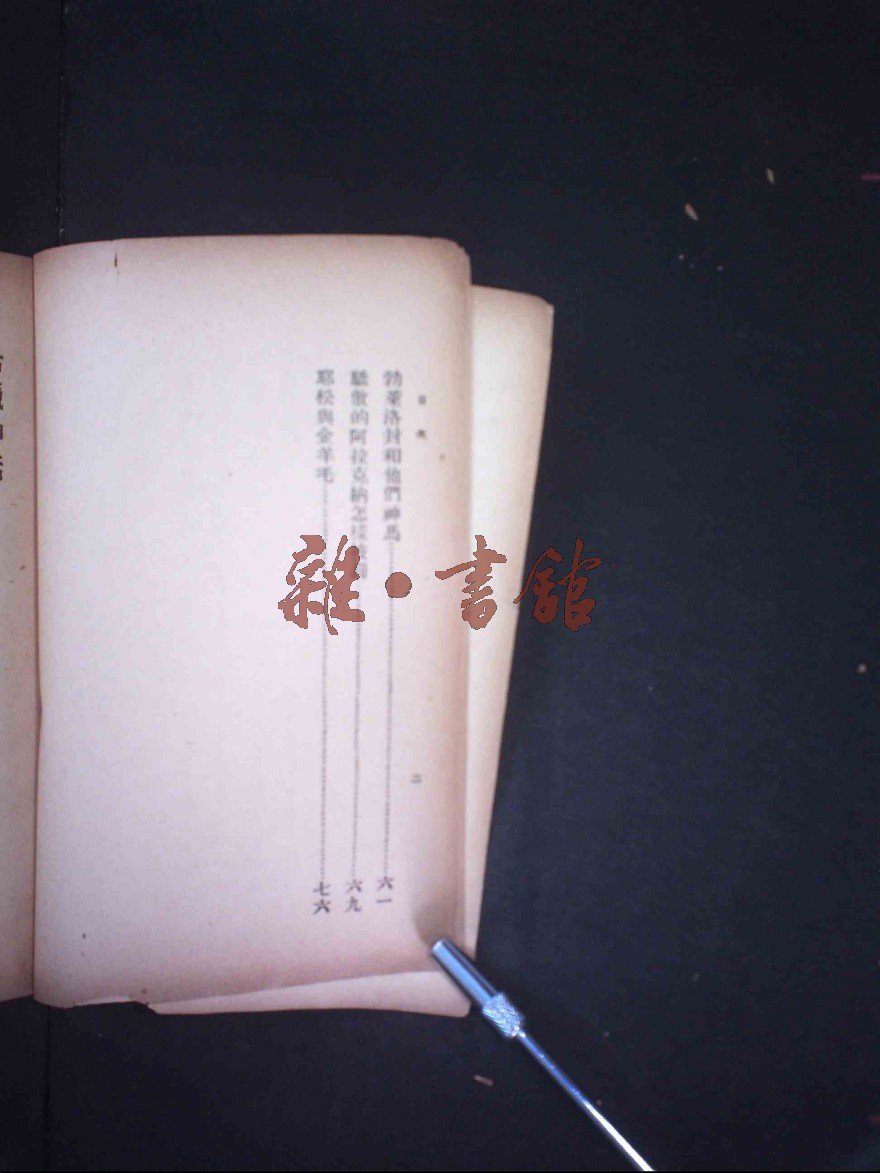 目次
勃萊洛封和他們神馬……六一
驕傲的阿拉克納怎樣……六九
耶松與金羊毛……七六
二
雜·書舘